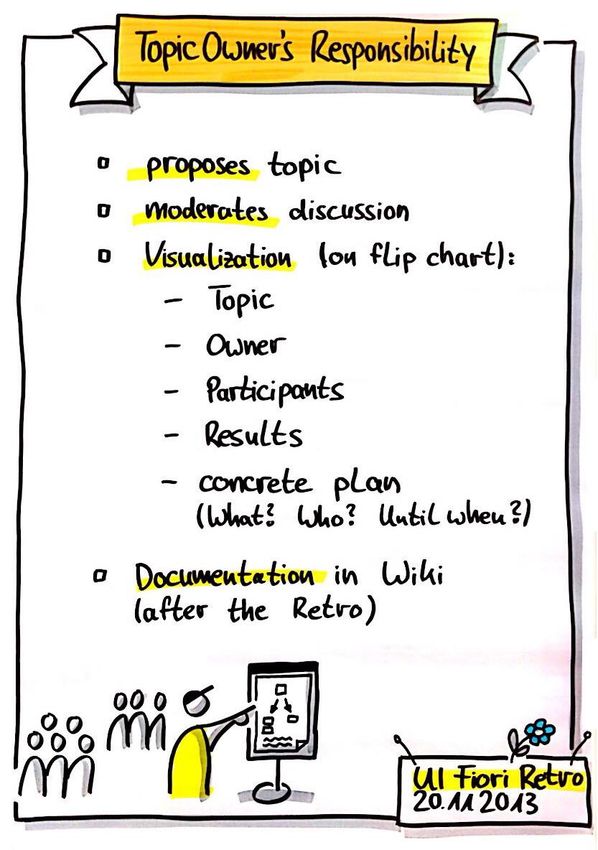 Topic Owner's Responsibility
proposes topic
moderates discussion
Visualization (on flip chart):
- Topic
- Owner
- Participants
- Results
- concrete plan
(What? Who? Until when?)
Documentation in Wiki
(after the Retro)
UI Fiori Retro
20.11.2013